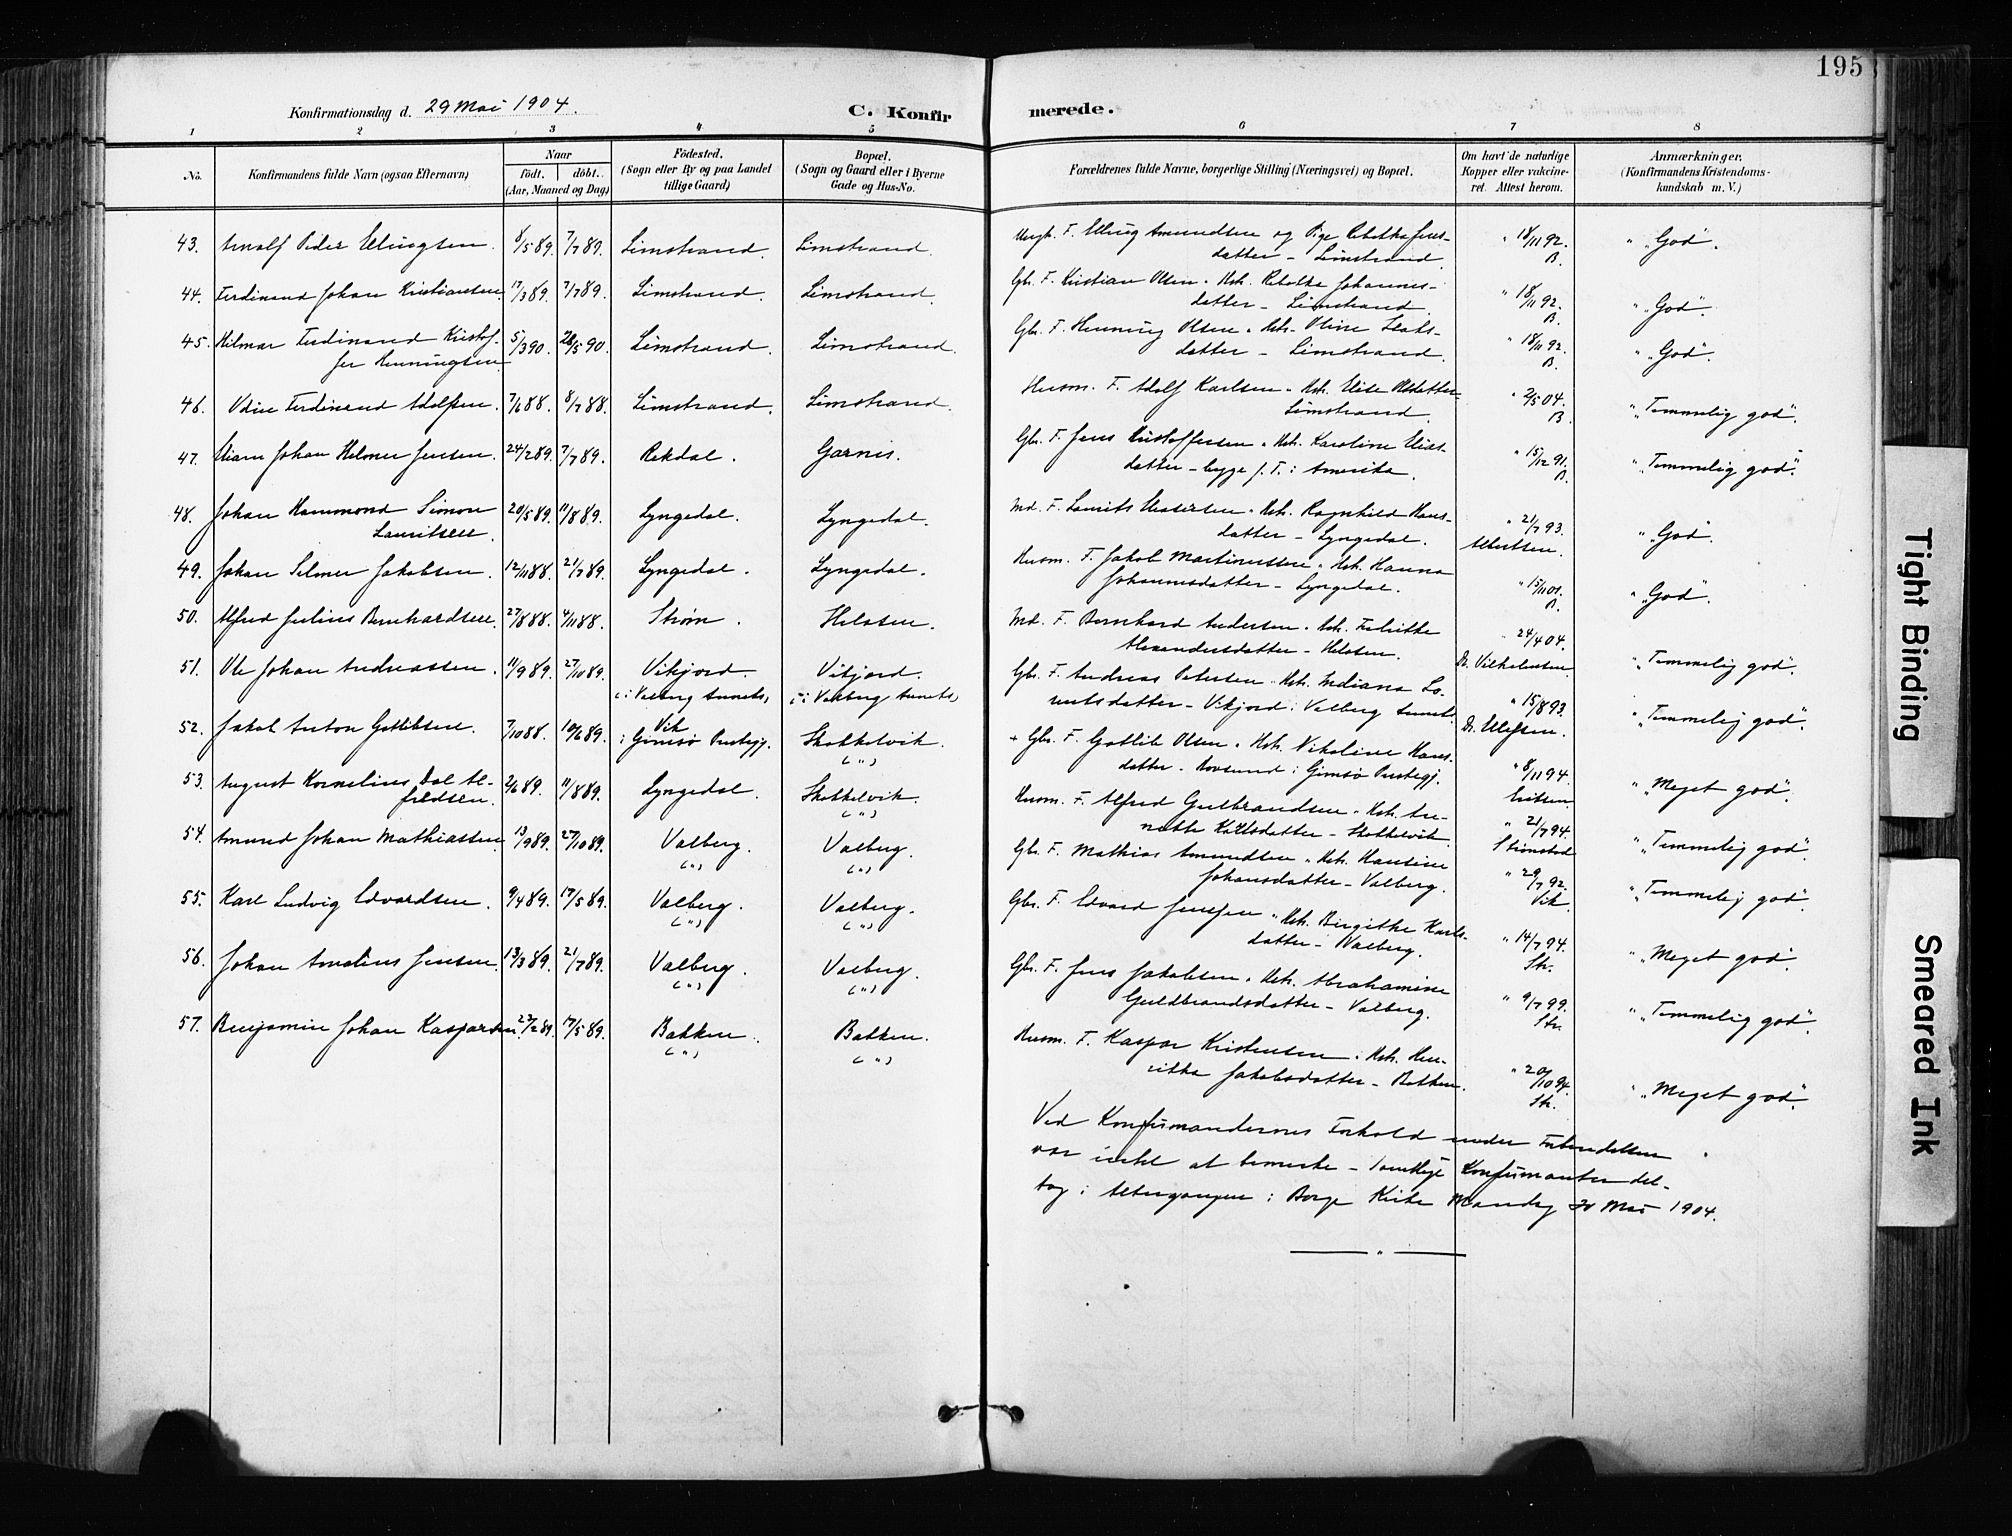 195
Konfirmationsdag d. 29 Mai 1904.
C. Konfir merede.
1 2 3 4 5 6 7 8
No.
Konfirmandens fulde Navn (ogsaa Efternavn)
Naar
født. døbt.
(Aar, Maaned og Dag)
Fødested.
(Sogn eller By og paa Landet
tillige Gaard)
Bopæl.
(Sogn og Gaard eller i Byerne
Gade og Hus-No.
Forældrenes fulde Navne, borgerlige Stilling (Næringsvei) og Bopæl.
Om havt de naturlige
Kopper eller vakcine-
ret. Attest herom.
Anmærkninger.
(Konfirmandens Kristendoms-
kundskab m. V.)
43. Arnolf Peder Ellingsen. 8/5 89. 7/7 89. Limstrand. Limstrand. Ungk. F. Elling Amundsen og Pige Rebekka Jens-
datter – Limstrand. " 18/11 92. B. " "God".
44. Ferdinand Johan Kristiansen 17/3 89. 7/7 89. Limstrand. Limstrand. Gbr. F. Kristian Olsen. Hst. Rebekka Johannes-
datter – Limstrand. " 18/11 92. B. " "God".
45. Hilmar Ferdinand Kristof-
fer Henningsen 5/3 90. 28/5 90. Limstrand. Limstrand. Gbr. F. Henning Olsen. Hst. Oline
datter – Limstrand. " 18/11 92. B. " "God".
46. Odin Ferdinand Adolfsen. 7/6 88. 8/7 88. Limstrand. Limstrand. Husm. F. Adolf Karlsen. Hst. Elise Olsdatter
Limstrand. " 2/5 04. B. " "Temmelig god".
47. Johan Helmer Jensen. 24/2 89. 7/7 89. Rekdal. Garnis. Gbr. F. Jens Kristoffersen. Hst. Karoline Elias-
datter – begge p. T. i Amerika. " 15/12 91. B. " "Temmelig god".
48. Johan Hammond Simon
Lauritsen. 20/5 89. 11/8 89. Lyngedal. Lyngedal. Md. F. Laurits. Hst. Ragnhild Hans-
datter – Lyngedal. " 21/7 93. Albertsen. " "God".
49. Johan Selmer Jakobsen. 12/11 88. 21/7 89. Lyngedal. Lyngedal. Husm. F. Jakob Martinussen. Hst. Hanna
Johannesdatter – Lyngedal. " 15/11 01. B. " "God".
50. Alfred Julius Bernhardsen. 27/8 88. 4/11 88. Strøm. Helosen. Md. F. Bernhard Andersen. Hst. Fredrikke
Alexandersdatter – Helosen. " 24/4 04. Dr. Vilhelmsen. " "Temmelig god".
51. Ole Johan Andreassen. 11/9 89. 27/10 89. Vikjord. Vikjord. Gbr. F. Andreas Petersen. Hst. Indiana Lo-
rentsdatter – Vikjord i Valberg Annets. " 15/8 93. Dr. Ellefsen. " "Temmelig god".
(i Valberg Annets) (i Valberg Annets)
52. Jakob Anton Gotlibsen. 7/10 88. 10/6 89. Vik
i Gimsø Prestegj. Skokkelvik. + Gbr. F. Gotlib Olsen. Hst. Nikoline Hans-
datter – Hovsund i Gimsø Prestegj. " 8/11 94. " "Meget god".
(") 
53. August Kornelius Dal Al-
fredsen. 2/6 89. 11/8 89. Lyngedal. Skokkelvik. Husm. F. Alfred Gulbrandsen. Hst. An-
nette Karlsdatter – Skokkelvik. " 21/7 94. Strømstad " "Temmelig god".
(")
54. Amund Johan Mathiassen 13/9 89. 27/10 89. Valberg. Valberg. Gbr. F. Mathias Amundsen. Hst. Hansine
Johansdatter – Valberg. " 29/7 92. Vik. " "Temmelig god".
(") (")
55. Karl Ludvig Edvardsen. 9/4 89. 17/5 89. Valberg. Valberg. Gbr. F. Edvard Jensen. Hst. Birgithe Karls-
datter – Valberg. " 14/7 94. Str. " "Meget god".
(") (")
56. Johan Amelius Jensen. 13/3 89. 21/7 89. Valberg. Valberg. Gbr. F. Jens Jakobsen. Hst. Abrahamine
Guldbrandsdatter – Valberg. " 9/7 99. Str. " "Temmelig god".
(") (")
57. Benjamin Johan Kasparsen 23/2 89. 17/5 89. Bakken. Bakken. Husm. F. Kaspar Kristensen. Hst. Hen-
rikka Jakobsdatter – Bakken. " 20/10 94. Str. " "Meget god".
(") (")
Ved Konfirmandernes Forhold under Forberedelsen
var intet at bemerke – samtlige Konfirmanter del-
tog i Altergangen i Borge Kirke Mandag 30 Mai 1904.
Tight Binding
Smeared Ink